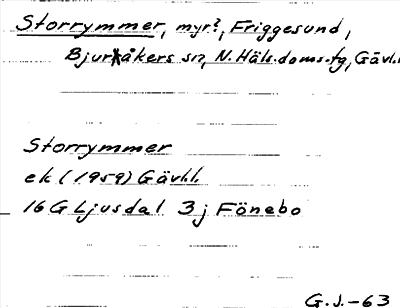 Storrymmer, myr?, Friggesund,
Bjuråkers sn, N. Häls. doms-tg, Gävl.l.
Storrymmer
ek (1959) Gävl.l.
16 G Ljusdal 3 j Fönebo
G.J.-63